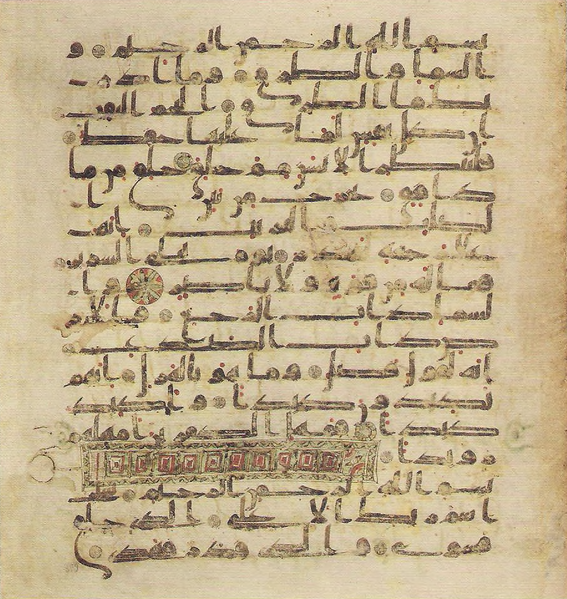 بسم الله الرحمن الرحيم و
السما والطرق وما ادر
يك ما الطرق النجم الثقب
ان كل نفس لما عليها حفظ
فلينظر الانسن مم خلق خلق من ما
دفق يخرج من بين ا
لصلب والترئب انه
على رجعه لقدر يوم تبلى السرئر
فما له من قوة ولا ناصر وا
لسما ذات الرجع والار
ض ذات الصدع
انه لقول فصل وما هو بالهزل انهم
يكيدون كيدا واكيد
كيدا فمهل الكفرين امهلهم
رويدا
بسم الله الرحمن الرحيم سبح
اسم ربك الاعلى الذي خلق
فسوى والذي قدر فهدى